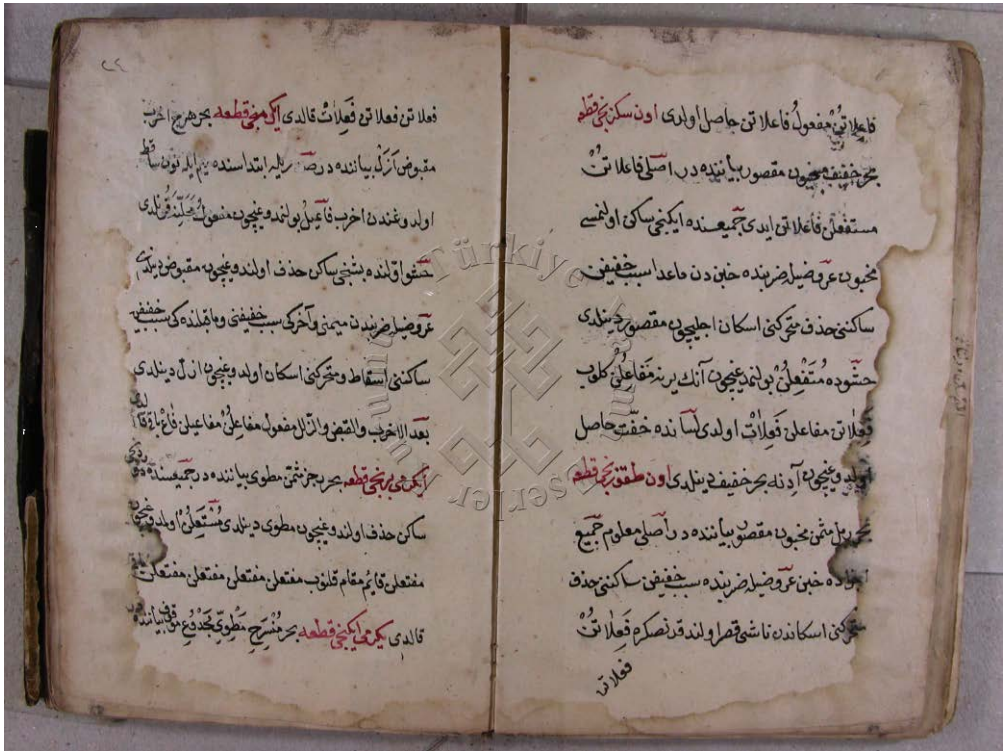 فاعلاتن مفعول فاعلاتن حاصل اولدى اون سكزنجى قطعه
بحر خفيف مخبون مقصور بياننده در اصلى فاعلاتن
مستفعلن فاعلاتن ايدى جميعنده ايكنجى ساكن اولنمسى
مخبون عروضيله ضربنده خبن دن ماعدا سبب خفيفن
ساكننى حذف متحركنى اسكان اجليچون مقصور دينلدى
حشوده متفعلن بولنمديغيچون آنك يرينه مفاعلن كلوب
فعلاتن مفاعلن فعلات اولدى لسانده خفت حاصل
اولديغيچون آدينه بحر خفيف دينلدى اون طقوزنجى قطعه
بحر رمل مثمن مخبون مقصور بياننده در اصلى معلوم جميع
اجزاده خبن عروضيله ضربنده سبب خفيفن ساكننى حذف
متحركنى اسكاندن ناشى قصر اولندقدنصكره فعلاتن
فعلاتن
٢٤
فعلاتن فعلاتن فعلات قالدى يكرمنجى قطعه بحر هزج اخرب
مقبوض ازل بياننده در ابتداسنده ميم ايله نون ساقط
اولدوغندن اخرب فاعيل بولنمدوغيچون مفعول
حشو اولنده بشنجى ساكن حذف اولندوغيچون مقبوض دينلدى
عروضيله ضربندن ميمنى و آخركى سبب خفيفنى و ماقبلنده كى سبب خفيفن
ساكننى اسقاط و متحركنى اسكان اولدوغيچون ازل دينلدى
بعد الاخرب والقبض والزلل مفعول مفاعلن مفاعيلن فاع باقى قالدى
يكرمى برنجى قطعه بحر رجز مثمن مطوى بياننده در جميعسنده
ساكن حذف اولندوغيچون مطوى دينلدى مستعلن اولدوغيچون
مفتعلن قائم مقام قلنوب مفتعلن مفتعلن مفتعلن مفتعلن
قالدى يكرمى ايكنجى قطعه بحر منسرح مطوى مجدوع موقوف بياننده
Türkiye
Eserler